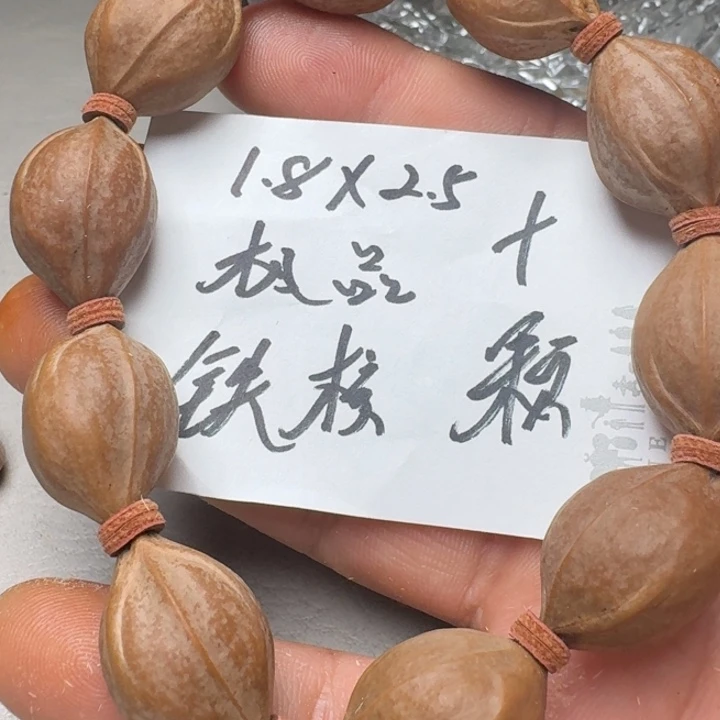 1.8X2.5
极品 十
铁核 颗